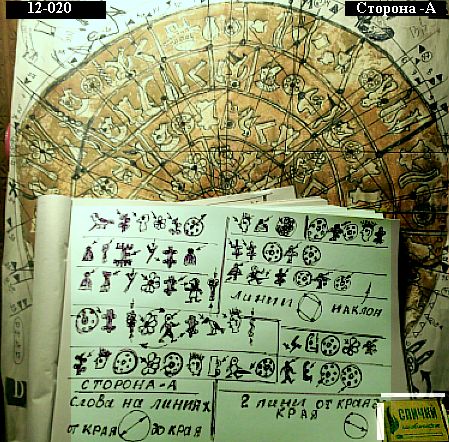 12-020
Сторона -А
ЛИНИИ
НАКЛОН
СТОРОНА-А
СЛОВА НА ЛИНИЯХ
ОТ КРАЯ ДО КРАЯ
2 ЛИНИ ОТ КРАЯ ДО
КРАЯ
СПИЧКИ